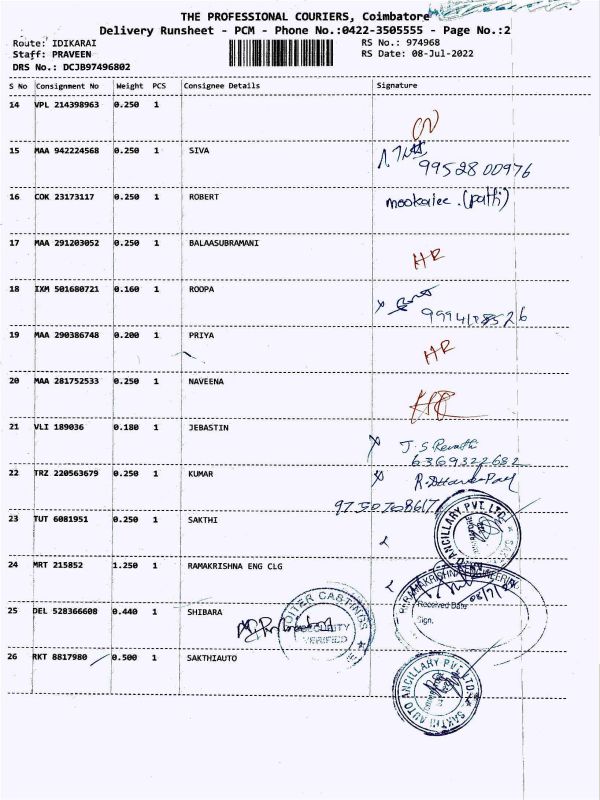 THE PROFESSIONAL COURIERS, Coimbatore
Delivery Runsheet - PCM - Phone No.:0422-3505555 - Page No.:2
Route: IDIKARAI RS No.: 974968
Staff: PRAVEEN RS Date: 08-Jul-2022
DRS No.: DCJB97496802
S No Consignment No Weight PCS Consignee Details Signature
14 VPL 214398963 0.250 1
15 MAA 942224568 0.250 1 SIVA
99528 00976
16 COK 23173117 0.250 1 ROBERT
(patti)
17 MAA 291203052 0.250 1 BALAASUBRAMANI HR
18 IXM 501680721 0.160 1 ROOPA
19 MAA 290386748 0.200 1 PRIYA HR
20 MAA 281752533 0.250 1 NAVEENA
21 VLI 189036 0.180 1 JEBASTIN J.S Revathi
6369322682
22 TRZ 220563679 0.250 1 KUMAR
23 TUT 6081951 0.250 1 SAKTHI
ANCILLARY PVT. LTD.
24 MRT 215852 1.250 1 RAMAKRISHNA ENG CLG
RAMAKRISHNA ENGINEERING
Received Date
Sign.
25 DEL 528366608 0.440 1 SHIBARA
CASTINGS
SECURITY
VERIFIED
26 RKT 8817980 0.500 1 SAKTHIAUTO
SAKTHI AUTO ANCILLARY PVT. LTD.